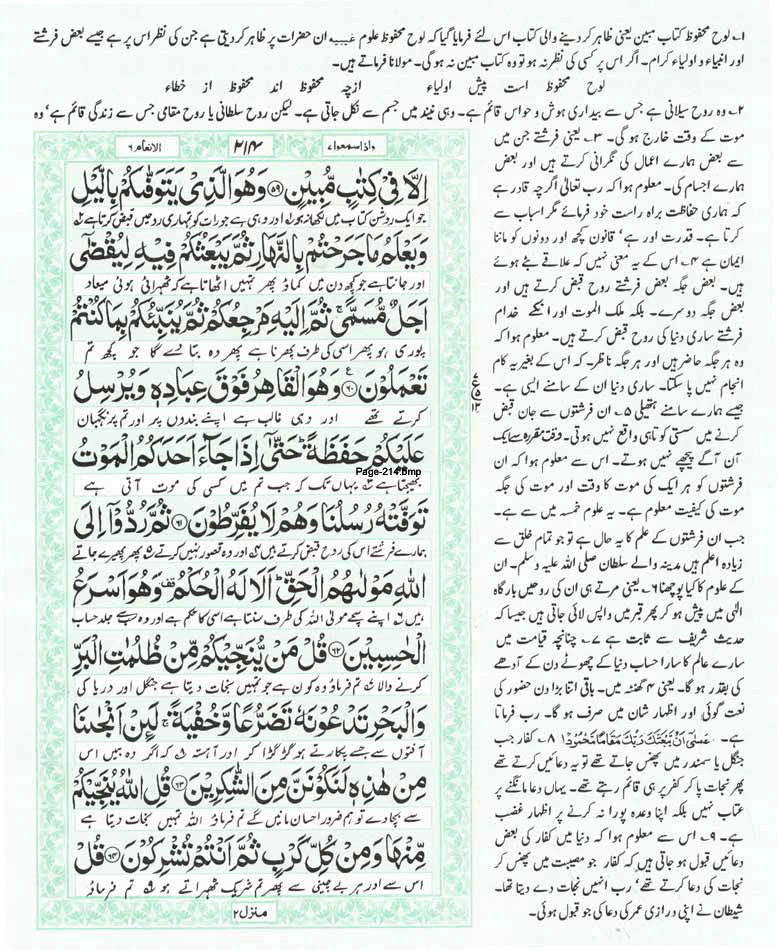 ۱؎ لوح محفوظ کتاب مبین یعنی ظاہر کر دینے والی کتاب اس لئے فرمایا گیا کہ لوح محفوظ علوم غیبیہ ان حضرات پر ظاہر کر دیتی ہے جن کی نظر اس پر ہے جیسے بعض فرشتے
اور انبیاء و اولیاء کرام۔ اگر اس پر کسی کی نظر نہ ہو تو وہ کتاب مبین نہ ہو گی۔ مولانا فرماتے ہیں۔
لوح محفوظ است پیش اولیاء ازچہ محفوظ اند محفوظ از خطاء
۲؎ وہ روح سیلانی ہے جس سے بیداری ہوش و حواس قائم ہے۔ وہی نیند میں جسم سے نکل جاتی ہے۔ لیکن روح سلطانی یا روح مقامی جس سے زندگی قائم ہے' وہ
موت کے وقت خارج ہو گی۔ ۳؎ یعنی فرشتے جن میں
سے بعض ہمارے اعمال کی نگرانی کرتے ہیں اور بعض
ہمارے اجسام کی۔ معلوم ہوا کہ رب تعالیٰ اگرچہ قادر ہے
کہ ہماری حفاظت براہ راست خود فرمائے مگر اسباب سے
کرتا ہے۔ قدرت اور ہے' قانون کچھ اور دونوں کو ماننا
ایمان ہے ۴؎ اس کے یہ معنی نہیں کہ علاقے بٹے ہوئے
ہیں۔ بعض جگہ بعض فرشتے روح قبض کرتے ہیں اور
بعض جگہ دوسرے۔ بلکہ ملک الموت اور انکے خدام
فرشتے ساری دنیا کی روح قبض کرتے ہیں۔ معلوم ہوا کہ
وہ ہر جگہ حاضر ہیں اور ہر جگہ ناظر۔ کہ اس کے بغیر یہ کام
انجام نہیں پا سکتا۔ ساری دنیا ان کے سامنے ایسی ہے۔
جیسے ہمارے سامنے ہتھیلی ۵؎ ان فرشتوں سے جان قبض
کرنے میں سستی کوتاہی واقع نہیں ہوتی۔ وقت مقررہ سے ایک
آن آگے پیچھے نہیں ہوتے۔ اس سے معلوم ہوا کہ ان
فرشتوں کو ہر ایک کی موت کا وقت اور موت کی جگہ
موت کی کیفیت معلوم ہے۔ یہ علوم خمسہ میں سے ہے۔
جب ان فرشتوں کے علم کا یہ حال ہے تو جو تمام خلق سے
زیادہ اعلم ہیں مدینہ والے سلطان صلی اللہ علیہ وسلم۔ ان
کے علوم کا کیا پوچھنا ۶؎ یعنی مرتے ہی ان کی روحیں بارگاہ
الٰہی میں پیش ہو کر پھر قبر میں واپس لائی جاتی ہیں جیسا کہ
حدیث شریف سے ثابت ہے ۷؎ چنانچہ قیامت میں
سارے عالم کا سارا حساب دنیا کے چھوٹے دن کے آدھے
کی بقدر ہو گا۔ یعنی ۴ گھنٹہ میں۔ باقی اتنا بڑا دن حضور کی
نعت گوئی اور اظہار شان میں صرف ہو گا۔ رب فرماتا
ہے۔ عَسٰٓی اَنْ یَّبْعَثَكَ رَبُّكَ مَقَامًا مَّحْمُوْدًا ۸؎ کفار جب
جنگل یا سمندر میں پھنس جاتے تھے تو یہ دعائیں کرتے تھے
پھر نجات پا کر کفر پر ہی قائم رہتے تھے۔ یہاں دعا مانگنے پر
عتاب نہیں بلکہ اپنا وعدہ پورا نہ کرنے پر اظہار غضب
ہے۔ ۹؎ اس سے معلوم ہوا کہ دنیا میں کفار کی بعض
دعائیں قبول ہو جاتی ہیں کہ کفار جو مصیبت میں پھنس کر
نجات کی دعا کرتے تھے' رب انہیں نجات دے دیتا تھا۔
شیطان نے اپنی درازی عمر کی دعا کی جو قبول ہوئی۔
واذا سمعوا ۷ ۲۱۴ الانعام ۶
اِلَّا فِیْ كِتٰبٍ مُّبِیْنٍ ۵۹ وَهُوَ الَّذِیْ یَتَوَفّٰىكُمْ بِالَّیْلِ
جو ایک روشن کتاب میں لکھا نہ ہو اور وہی ہے جو رات کو تمہاری روحیں قبض کرتا ہے
وَیَعْلَمُ مَا جَرَحْتُمْ بِالنَّهَارِ ثُمَّ یَبْعَثُكُمْ فِیْهِ لِیُقْضٰٓی
اور جانتا ہے جو کچھ دن میں کماؤ پھر تمہیں اٹھاتا ہے کہ ٹھہرائی ہوئی میعاد
اَجَلٌ مُّسَمًّی ۚ ثُمَّ اِلَیْهِ مَرْجِعُكُمْ ثُمَّ یُنَبِّئُكُمْ بِمَا كُنْتُمْ
پوری ہو پھر اسی کی طرف پھرنا ہے پھر وہ بتا دے گا جو کچھ تم
تَعْمَلُوْنَ ۶۰ وَهُوَ الْقَاهِرُ فَوْقَ عِبَادِهٖ وَیُرْسِلُ
کرتے تھے اور وہی غالب ہے اپنے بندوں پر اور تم پر نگہبان
عَلَیْكُمْ حَفَظَةً ؕ حَتّٰۤی اِذَا جَآءَ اَحَدَكُمُ الْمَوْتُ
Page-214.bmp
بھیجتا ہے یہاں تک کہ جب تم میں کسی کی موت آتی ہے
تَوَفَّتْهُ رُسُلُنَا وَهُمْ لَا یُفَرِّطُوْنَ ۶۱ ثُمَّ رُدُّوْۤا اِلَی
ہمارے فرشتے اس کی روح قبض کرتے ہیں اور وہ قصور نہیں کرتے پھر پھیرے جاتے
اللّٰهِ مَوْلٰىهُمُ الْحَقِّ ؕ اَلَا لَهُ الْحُكْمُ وَهُوَ اَسْرَعُ
ہیں اپنے سچے مولیٰ اللہ کی طرف سنتا ہے اسی کا حکم ہے اور وہ سب سے جلد حساب
الْحٰسِبِیْنَ ۶۲ قُلْ مَنْ یُّنَجِّیْكُمْ مِّنْ ظُلُمٰتِ الْبَرِّ
کرنے والا تم فرماؤ وہ کون ہے جو تمہیں نجات دیتا ہے جنگل اور دریا کی
وَالْبَحْرِ تَدْعُوْنَهٗ تَضَرُّعًا وَّخُفْیَةً ۚ لَئِنْ اَنْجٰىنَا
آفتوں سے جسے پکارتے ہو گڑگڑا کر اور آہستہ کہ اگر وہ ہمیں اس
مِنْ هٰذِهٖ لَنَكُوْنَنَّ مِنَ الشّٰكِرِیْنَ ۶۳ قُلِ اللّٰهُ یُنَجِّیْكُمْ
سے بچا دے تو ہم ضرور احسان مانیں گے تم فرماؤ اللہ تمہیں نجات دیتا ہے
مِّنْهَا وَمِنْ كُلِّ كَرْبٍ ثُمَّ اَنْتُمْ تُشْرِكُوْنَ ۶۴ قُلْ
اس سے اور ہر بے چینی سے پھر تم شریک ٹھہراتے ہو تم فرماؤ
منزل ۲